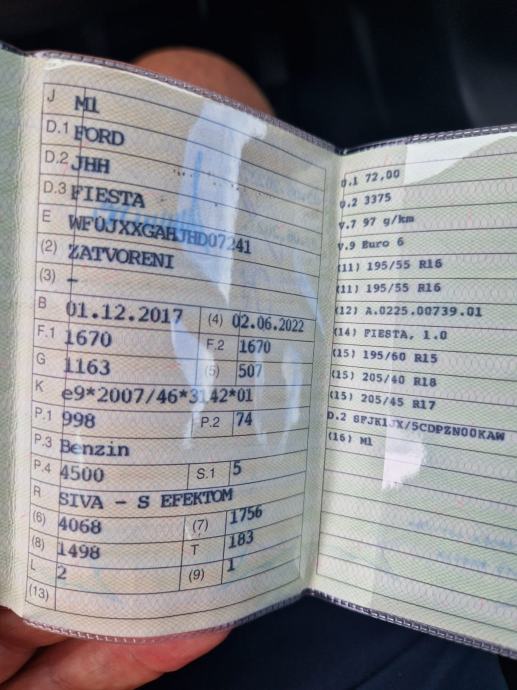 J M1
D.1 FORD
D.2 JHH
D.3 FIESTA
E WF0JXXGAHJHD07241
(2) ZATVORENI
(3) -
B 01.12.2017 (4) 02.06.2022
F.1 1670 F.2 1670
G 1163 (5) 507
K e9*2007/46*3142*01
P.1 998 P.2 74
P.3 Benzin
P.4 4500 S.1 5
R SIVA - S EFEKTOM
(6) 4068 (7) 1756
(8) 1498 T 183
L 2 (9) 1
(13)
U.1 72,00
U.2 3375
V.7 97 g/km
V.9 Euro 6
(11) 195/55 R16
(11) 195/55 R16
(12) A.0225.00739.01
(14) FIESTA, 1.0
(15) 195/60 R15
(15) 205/40 R18
(15) 205/45 R17
D.2 SFJK1JX/5CDPZN00KAW
(16) M1